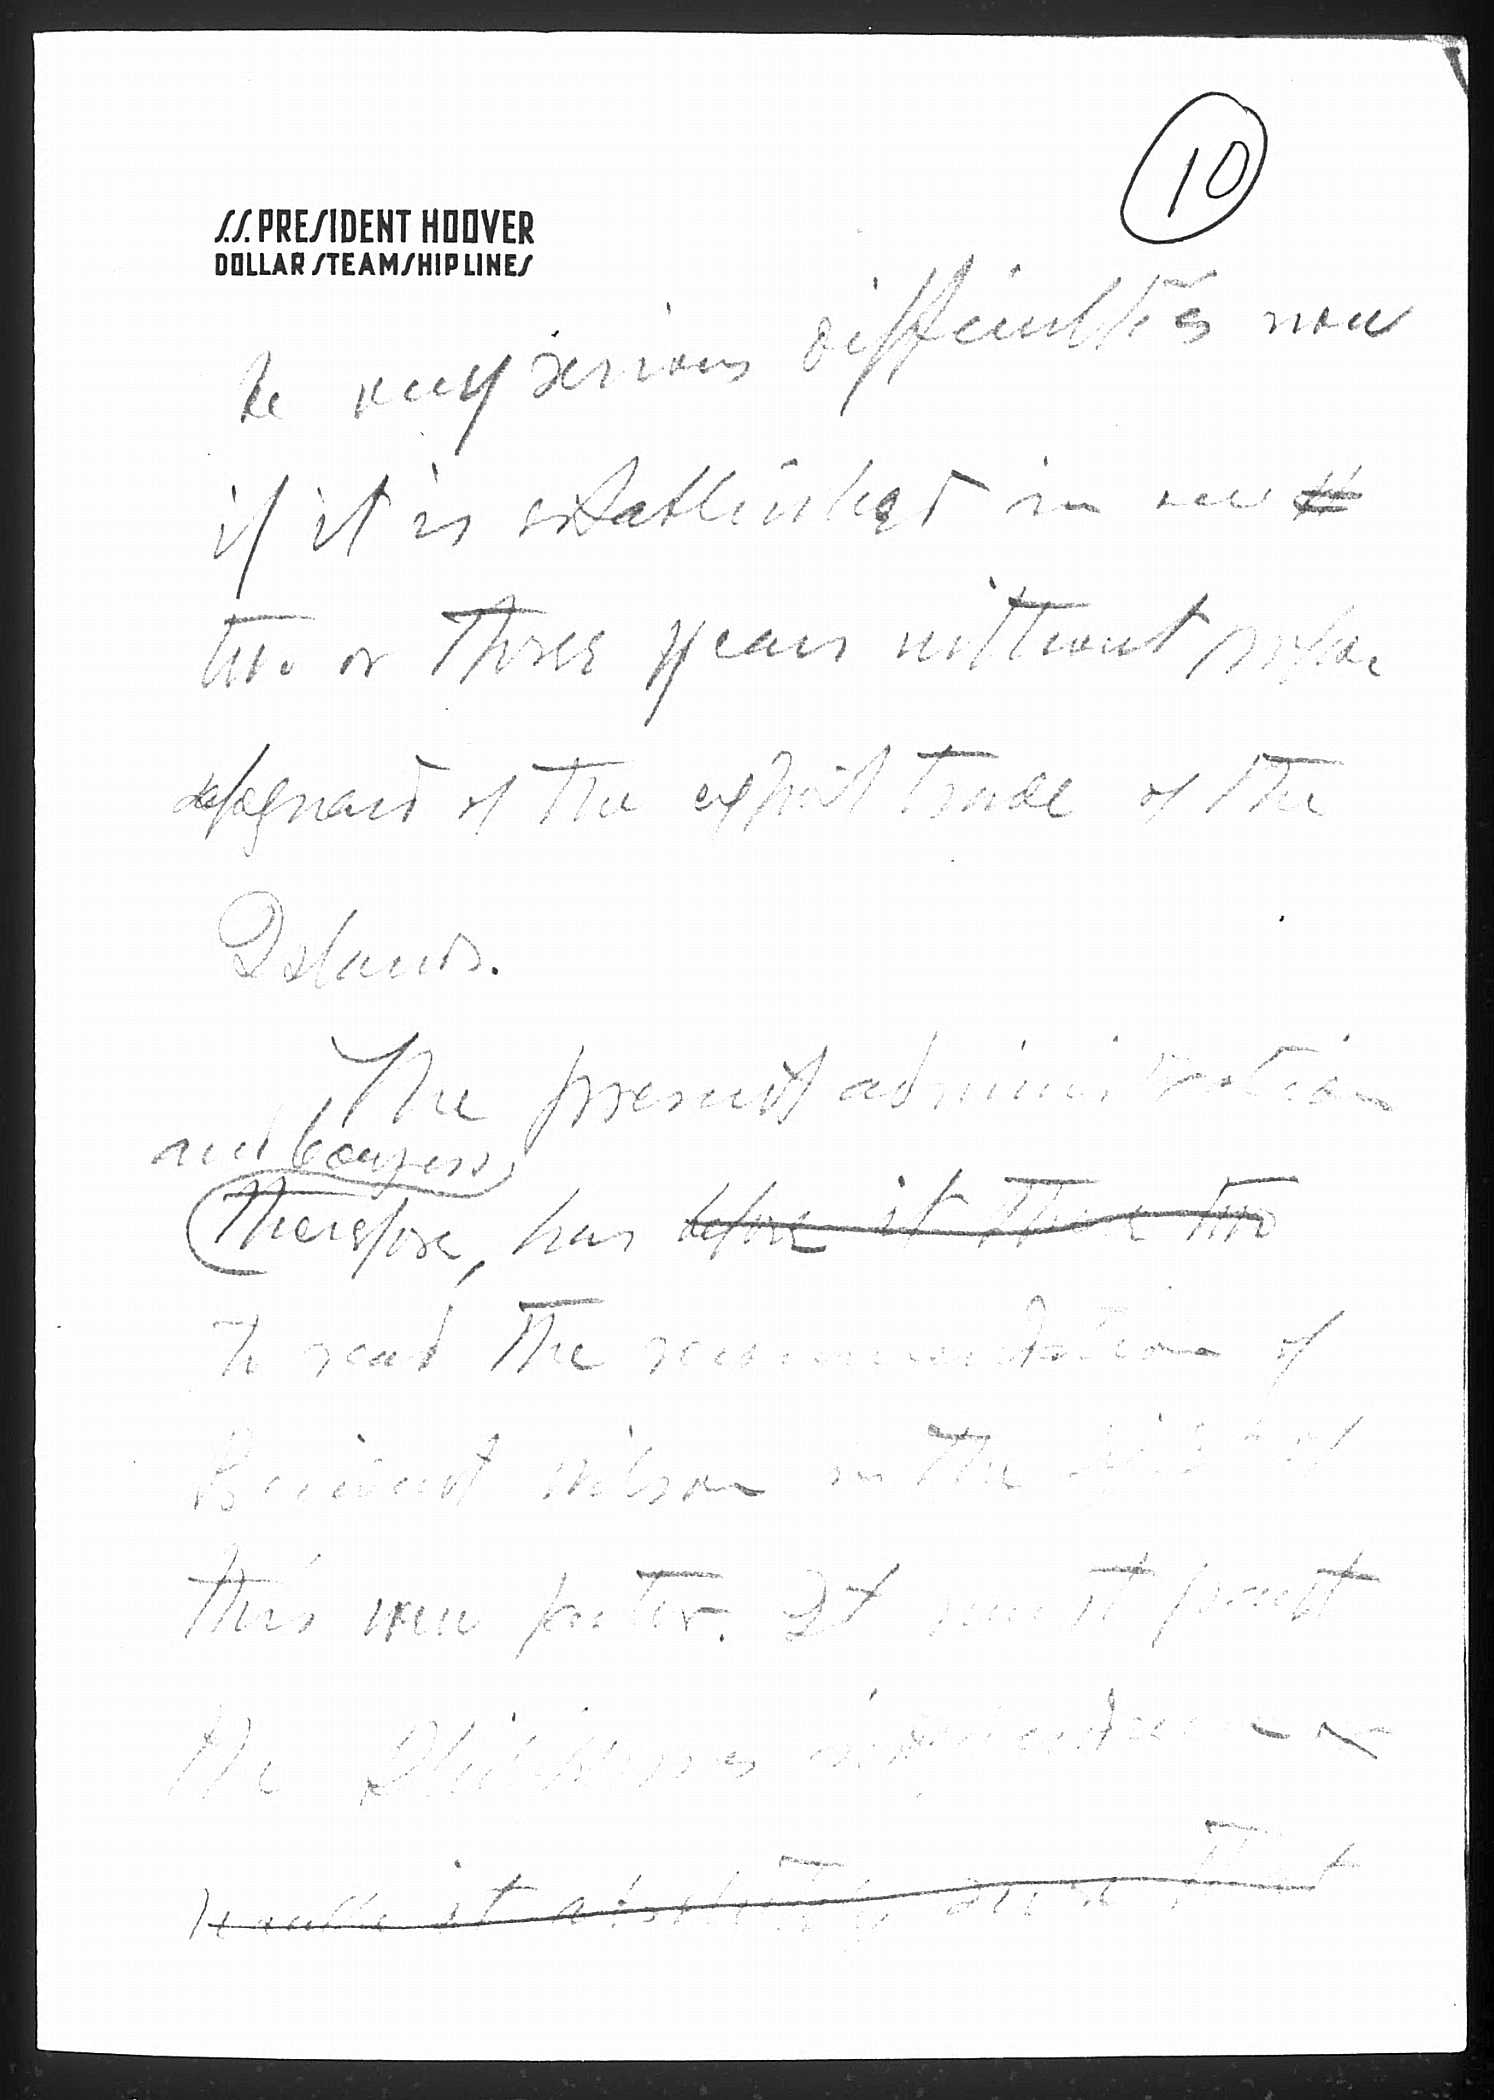 10
S.S. PRESIDENT HOOVER
DOLLAR STEAMSHIP LINES
be very serious difficulties now
if it is established in
two or three years without
safeguard of the export trade of the
Islands.
The present administration
and Congress,
Therefore, has before it these two
to read the recommendation of
President Wilson in the light of
this new factor. It must grant
the Philippines independence
it absolutely sure that